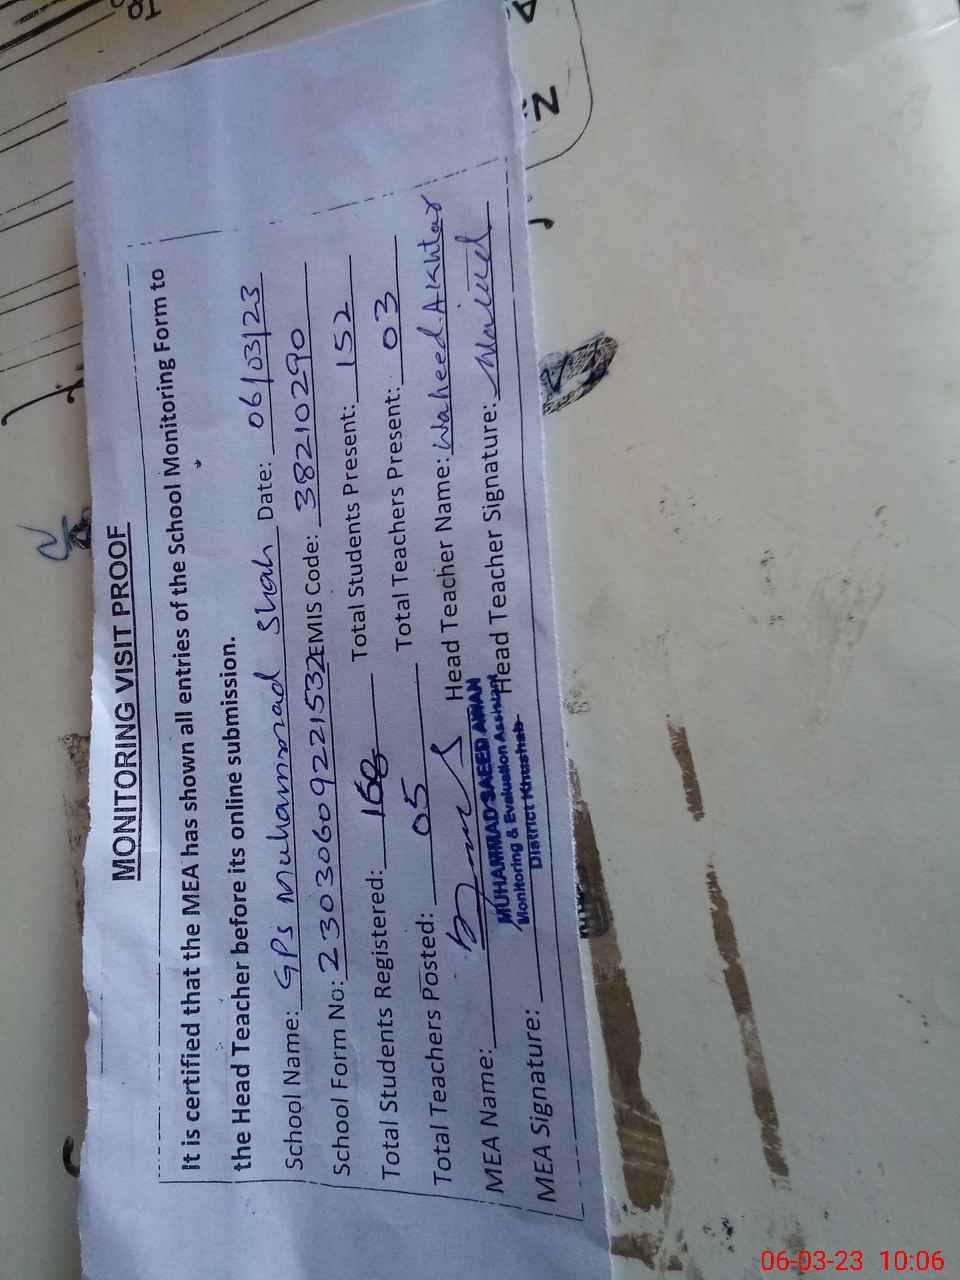 MONITORING VISIT PROOF
It is certified that the MEA has shown all entries of the School Monitoring Form to
the Head Teacher before its online submission.
School Name: GPS Muhammad Shah Date: 06/03/23
School Form No: 23030609221532 EMIS Code: 38210290
Total Students Registered: 168 Total Students Present: 152
Total Teachers Posted: 05 Total Teachers Present: 03
MEA Name: Head Teacher Name: Waheed Akhtar
MEA Signature: Head Teacher Signature:
MUHAMMAD SAEED AWAN
Monitoring & Evaluation Assistant
District Khushab
06-03-23 10:06